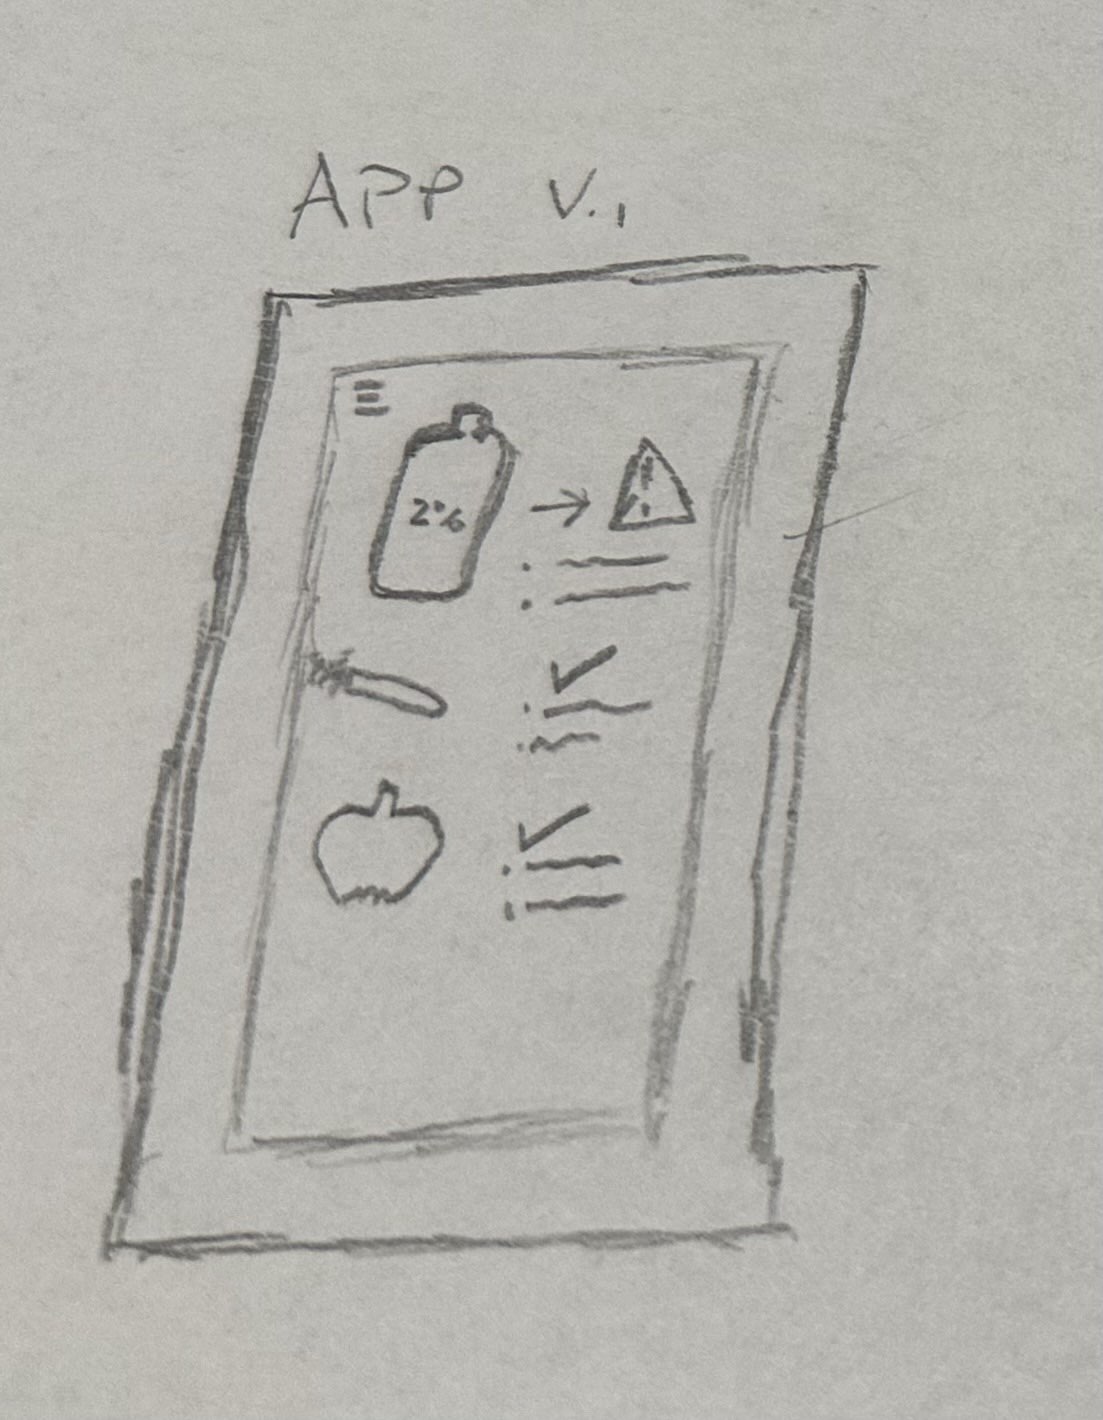 APP V.1
2%